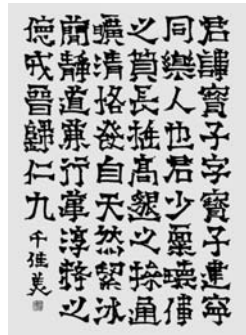 君諱寶子字寶子建寧
同樂人也君少稟瓌偉
之質長挺高邈之操通
曠清恪發自天然絜冰
簡靜道兼行葦淳粹之
德戎晉歸仁九